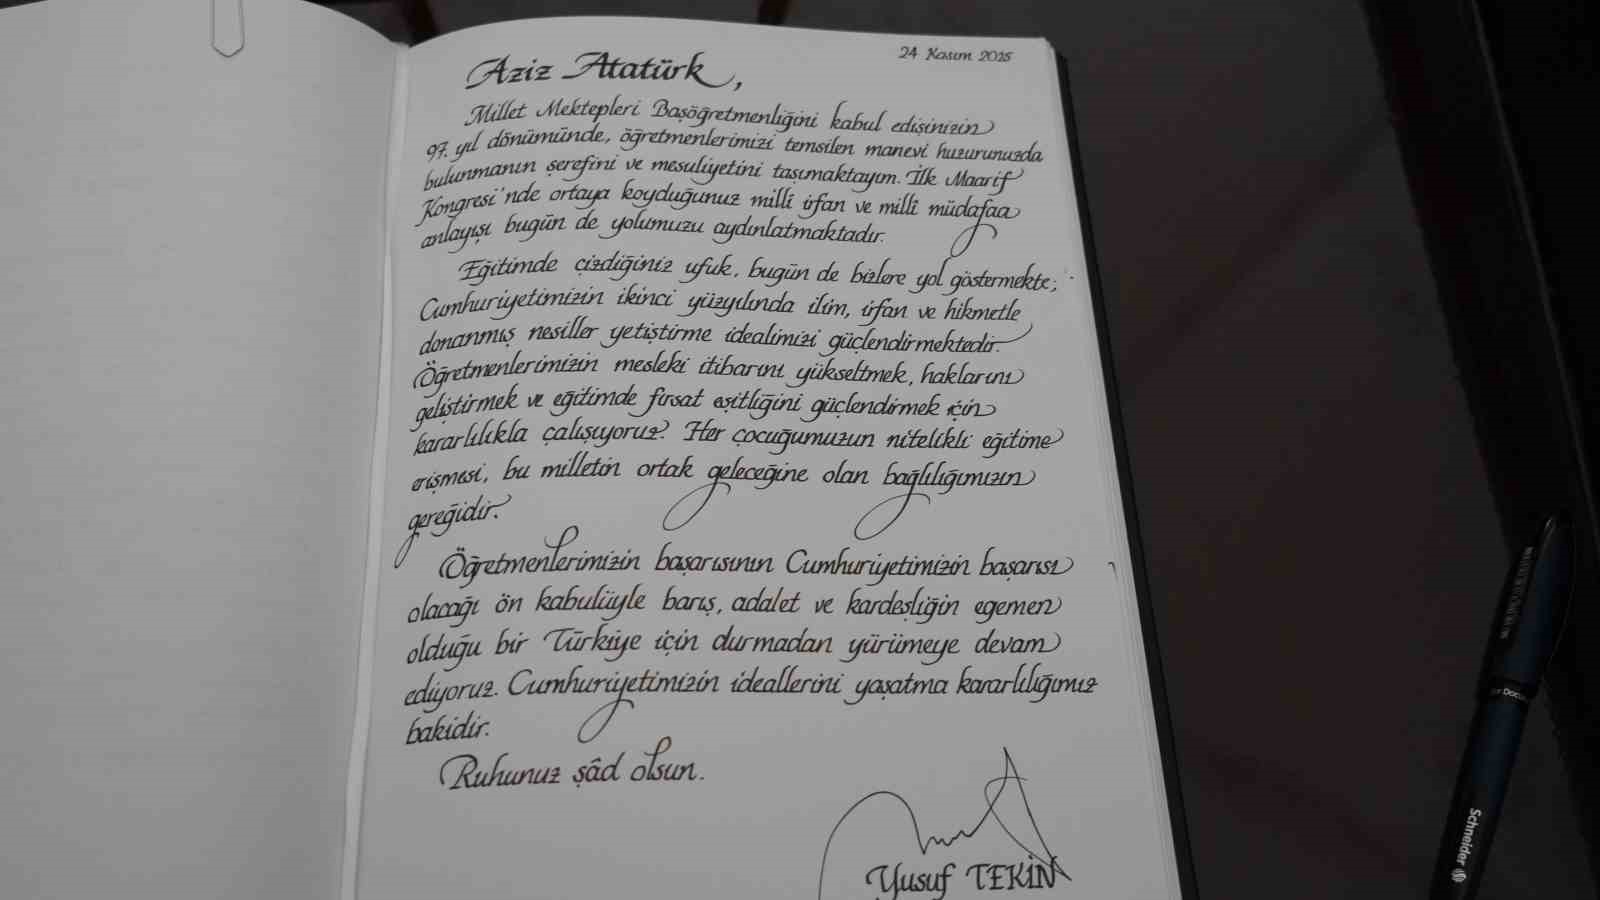 24 Kasım 2025
Aziz Atatürk,
Millet Mektepleri Başöğretmenliğini kabul edişinizin
97. yıl dönümünde, öğretmenlerimizi temsilen manevi huzurunuzda
bulunmanın şerefini ve mesuliyetini taşımaktayım. İlk Maarif
Kongresi'nde ortaya koyduğunuz millî irfan ve millî müdafaa
anlayışı bugün de yolumuzu aydınlatmaktadır.
Eğitimde çizdiğiniz ufuk, bugün de bizlere yol göstermekte;
Cumhuriyetimizin ikinci yüzyılında ilim, irfan ve hikmetle
donanmış nesiller yetiştirme idealimizi güçlendirmektedir.
Öğretmenlerimizin mesleki itibarını yükseltmek, haklarını
geliştirmek ve eğitimde fırsat eşitliğini güçlendirmek için
kararlılıkla çalışıyoruz. Her çocuğumuzun nitelikli eğitime
erişmesi, bu milletin ortak geleceğine olan bağlılığımızın
gereğidir.
Öğretmenlerimizin başarısının Cumhuriyetimizin başarısı
olacağı ön kabulüyle barış, adalet ve kardeşliğin egemen
olduğu bir Türkiye için durmadan yürümeye devam
ediyoruz. Cumhuriyetimizin ideallerini yaşatma kararlılığımız
bakidir.
Ruhunuz şâd olsun.
Yusuf TEKİN
Schneider